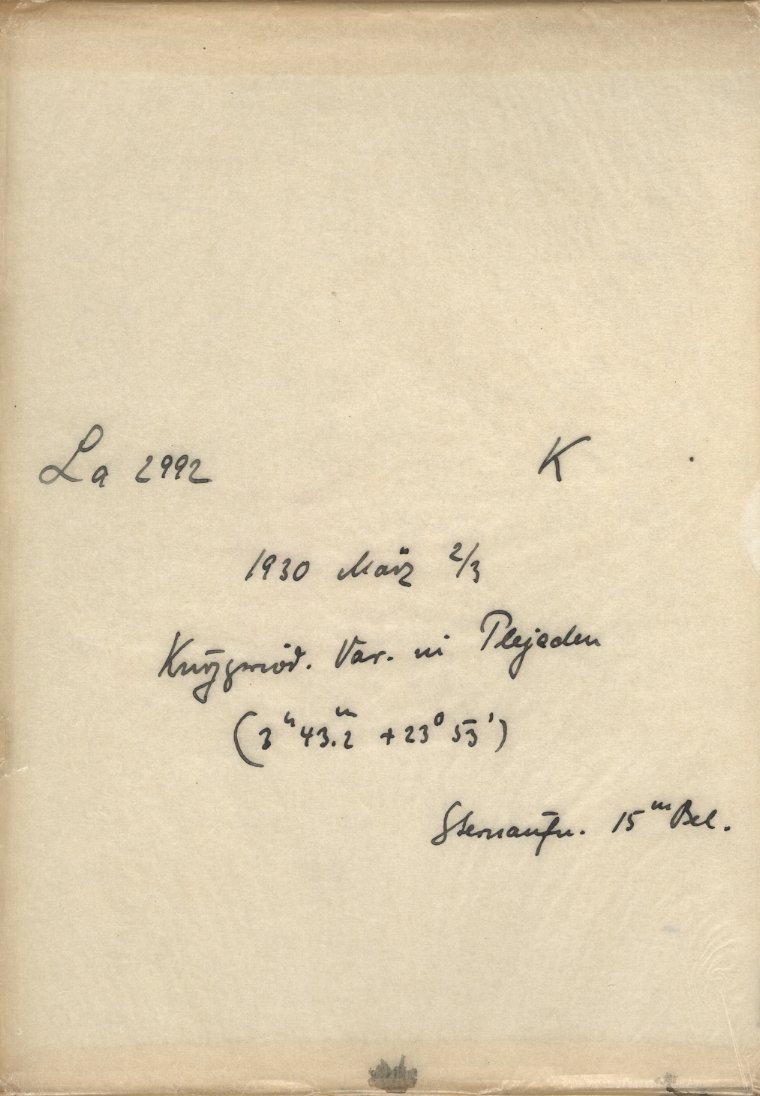 La 2992 K
1930 März 2/3
Kurzperiod. Var. in Plejaden
(3ʰ 43.ᵐ2 +23° 53')
Sternaufn. 15ᵐ Bel.